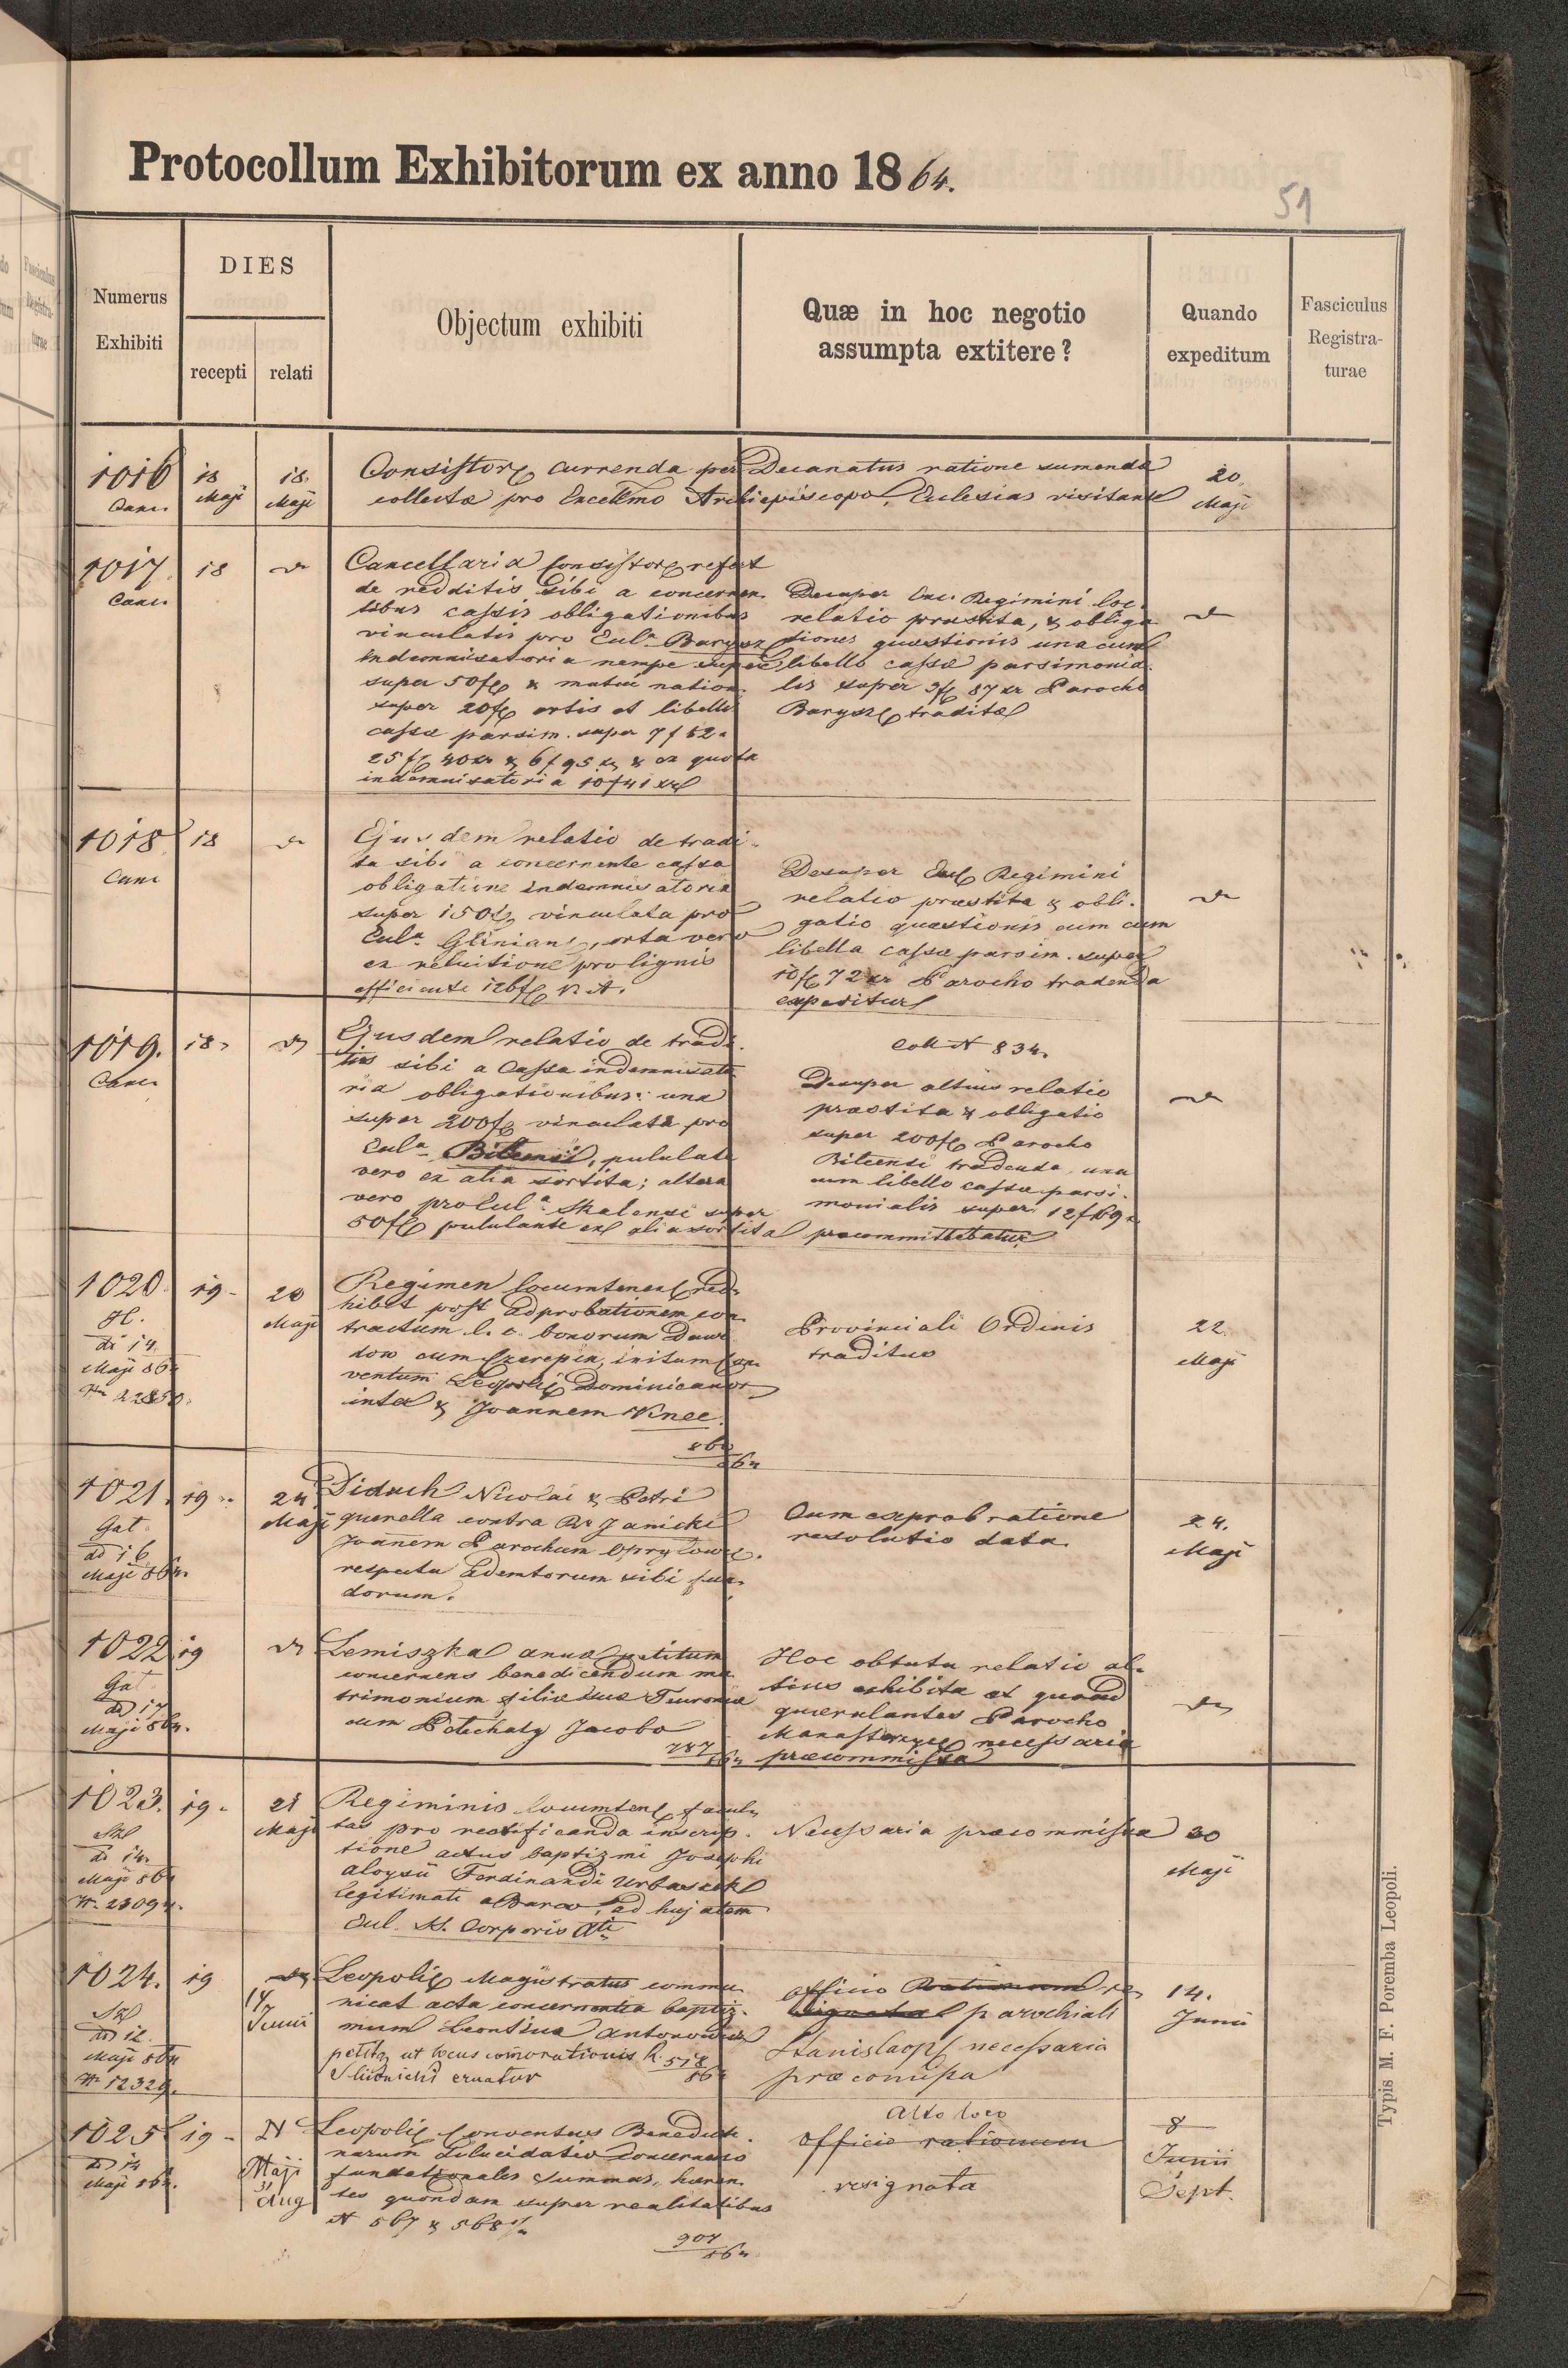 Protocollum Exhibitorum ex anno 1864.
51
Numerus Exhibiti
DIES
recepti relati
Objectum exhibiti
Quæ in hoc negotio
assumpta extitere?
Quando
expeditum
Fasciculus
Registra-
turae
1016 18 18.
Canc. Maji Maji
Currenda per Decanatus ratione sumenda
collectæ pro Archiepiscopo, Ecclesias
20.
Maji
1017. 18
Canc.
Cancellaria refert
de redditis sibi a concernen
tibus cassis obligationibus
vinculatis pro Barysz
indemnisatoria nempe
super 50f & mutui nation.
super 20f ortis et libello
cassæ parsim. super 7f 52
25f 40xr & 6f 95 & ex quota
indemnisatoria 10f 41xr
Desuper Regimini
relatio præstita, & obliga
tiones quæstionis una cum
libello cassæ parsimonia
lis super 9f 87 xr Parocho
Barysz tradita
1018 18
Canc
Ejusdem relatio de tradi-
ta sibi a concernente cassa
obligatione indemnisatoria
super 150f vinculata pro
Gliniany, orta vero
ex reluitione pro lignis
efficiente 126f
Desuper Regimini
relatio præstita & obli-
gatio quæstionis cum
libella cassæ parsim. super
10f 72 xr Parocho tradenda
expeditur
1019. 18.
Canc.
Ejusdem relatio de tradi-
tis sibi a Cassa indemnisato
ria obligationibus: una
super 200f vinculata pro
pululate
vero ex alia sortita; altera
vero pro Skalensi super
50f pululante ex alia sortita
834.
Desuper altius relatio
præstita & obligatio
super 200f Parocho
tradenda, una
cum libello cassæ parsi-
monialis super 12f 69
præcommittebatur
1020. 19. 20
Maji
14.
Maji 864
Regimen locumtenen red-
hibet post adprobationem con-
tractum l. c. bonorum
cum Czerepin, initum
ventum Leopoli Dominicanor
inter & Joannem Knee.
Provinciali Ordinis
traditus
22.
Maji
1021. 19. 24
Maji
Gat.
16
Maji 864
Diduch Nicolai & Petri
querella contra Janicki
Joannem Parochum
respectu ademtorum sibi fun-
dorum.
Cum exprobratione
resolutio data.
24.
Maji
1022 19
Ga
17
Maji 864.
Lemiszka annæ petitum
concernens benedicendum ma
trimonium filiæ suæ
cum Potechaly Jacobo
787/864
Hoc obtutu relatio al-
tius exhibita et quoad
querulantes Parocho
necessaria
præcommissa
1023. 19. 21
Maji
14.
Maji 864
Regiminis locumten facul-
tas pro rectificanda inscrip-
tione actus baptizmi Josephi
Aloysii Ferdinandi
legitimati ad hujatem
Corporis
Necessaria præcommissa
30
Maji
1024. 19
14
Junii
12.
Maji 864
Leopoli Magistratus commu
nicat acta concernentia baptiz-
mum
petit, ut locus comorationis
eruatur
518
officio parochiali
necessaria
14.
Junii
1025 19
14
Maji 864.
Maji
31 Aug
Leopoli Conventus Benedicti-
narum dilucidatio concernens
fundationales summas, hæren-
tes quondam super realitatibus
N 567 & 568
907/864
alto loco
officio rationum
resignata
8
Junii
Sept.
Typis M. F. Poremba Leopoli.